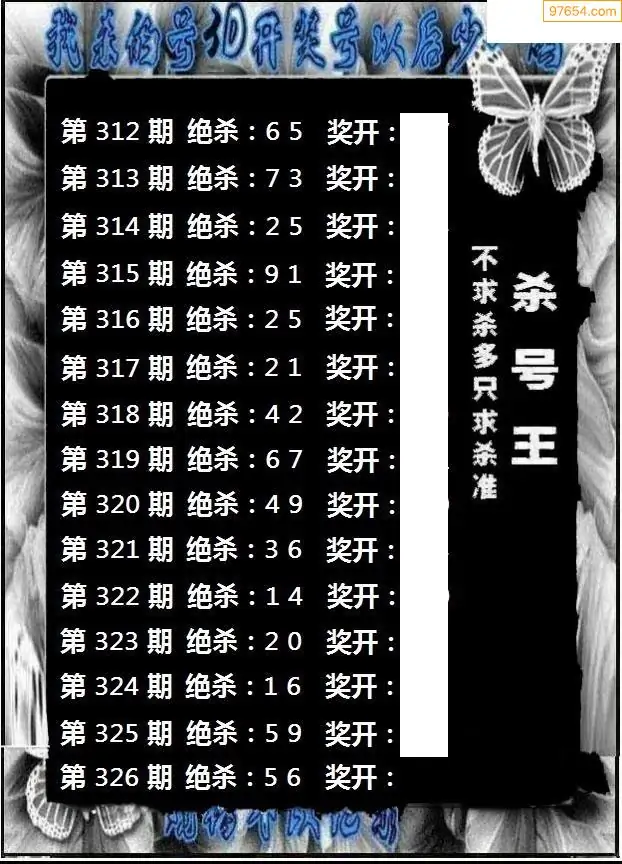 97654.com
第 312 期 绝杀：6 5 奖开：
第 313 期 绝杀：7 3 奖开：
第 314 期 绝杀：2 5 奖开：
第 315 期 绝杀：9 1 奖开：
第 316 期 绝杀：2 5 奖开：
第 317 期 绝杀：2 1 奖开：
第 318 期 绝杀：4 2 奖开：
第 319 期 绝杀：6 7 奖开：
第 320 期 绝杀：4 9 奖开：
第 321 期 绝杀：3 6 奖开：
第 322 期 绝杀：1 4 奖开：
第 323 期 绝杀：2 0 奖开：
第 324 期 绝杀：1 6 奖开：
第 325 期 绝杀：5 9 奖开：
第 326 期 绝杀：5 6 奖开：
杀号王
不求杀多只求杀准